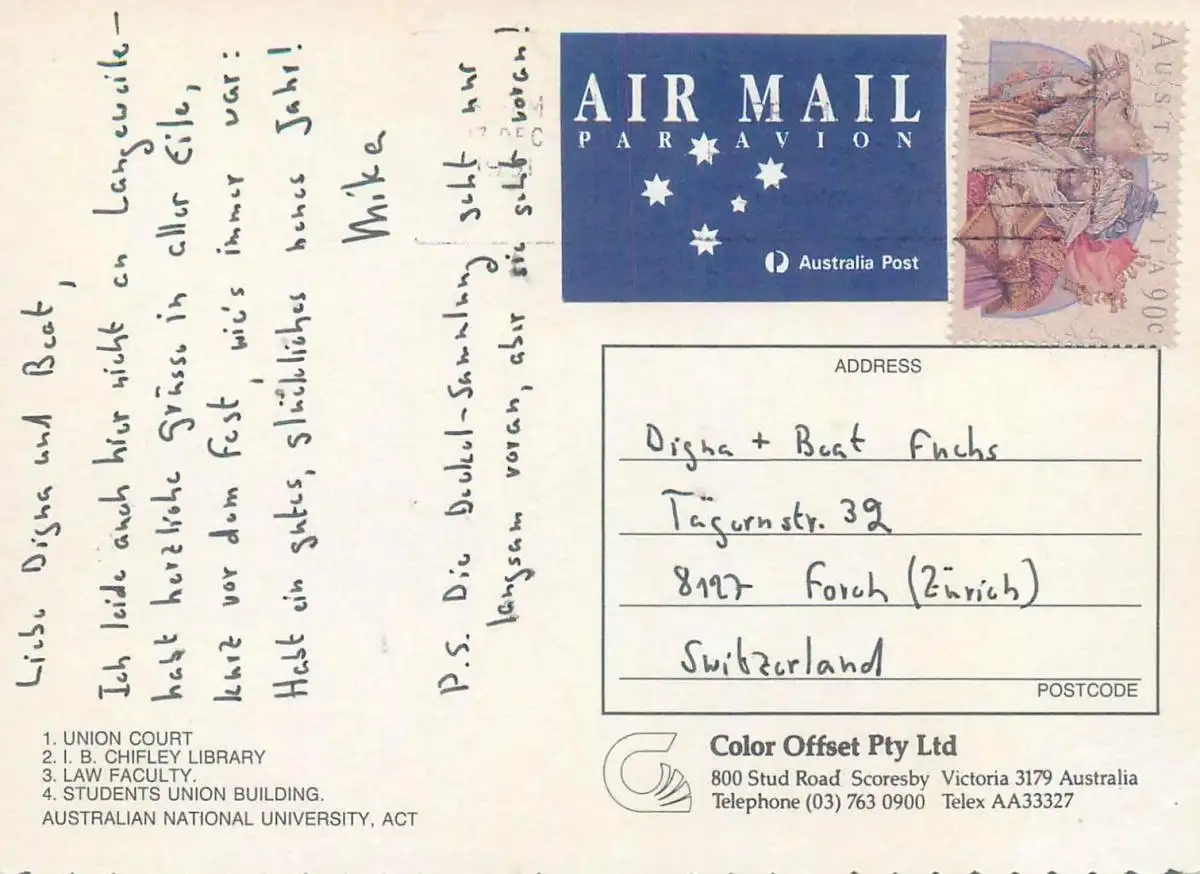 Liebe Digna und Beat,
Ich leide auch hier nicht an Langeweile –
habt herzliche Grüsse in aller Eile,
kurz vor dem Fest, wie's immer war:
Habt ein gutes, glückliches neues Jahr!
Mika
P.S. Die Deckel-Sammlung geht nur
langsam voran, aber sie geht voran!
1. UNION COURT
2. I. B. CHIFLEY LIBRARY
3. LAW FACULTY.
4. STUDENTS UNION BUILDING.
AUSTRALIAN NATIONAL UNIVERSITY, ACT
AIR MAIL
PAR AVION
Australia Post
AUSTRALIA 90c
DEC
ADDRESS
Digna + Beat Fuchs
Tägernstr. 32
8127 Forch (Zürich)
Switzerland
POSTCODE
Color Offset Pty Ltd
800 Stud Road Scoresby Victoria 3179 Australia
Telephone (03) 763 0900 Telex AA33327